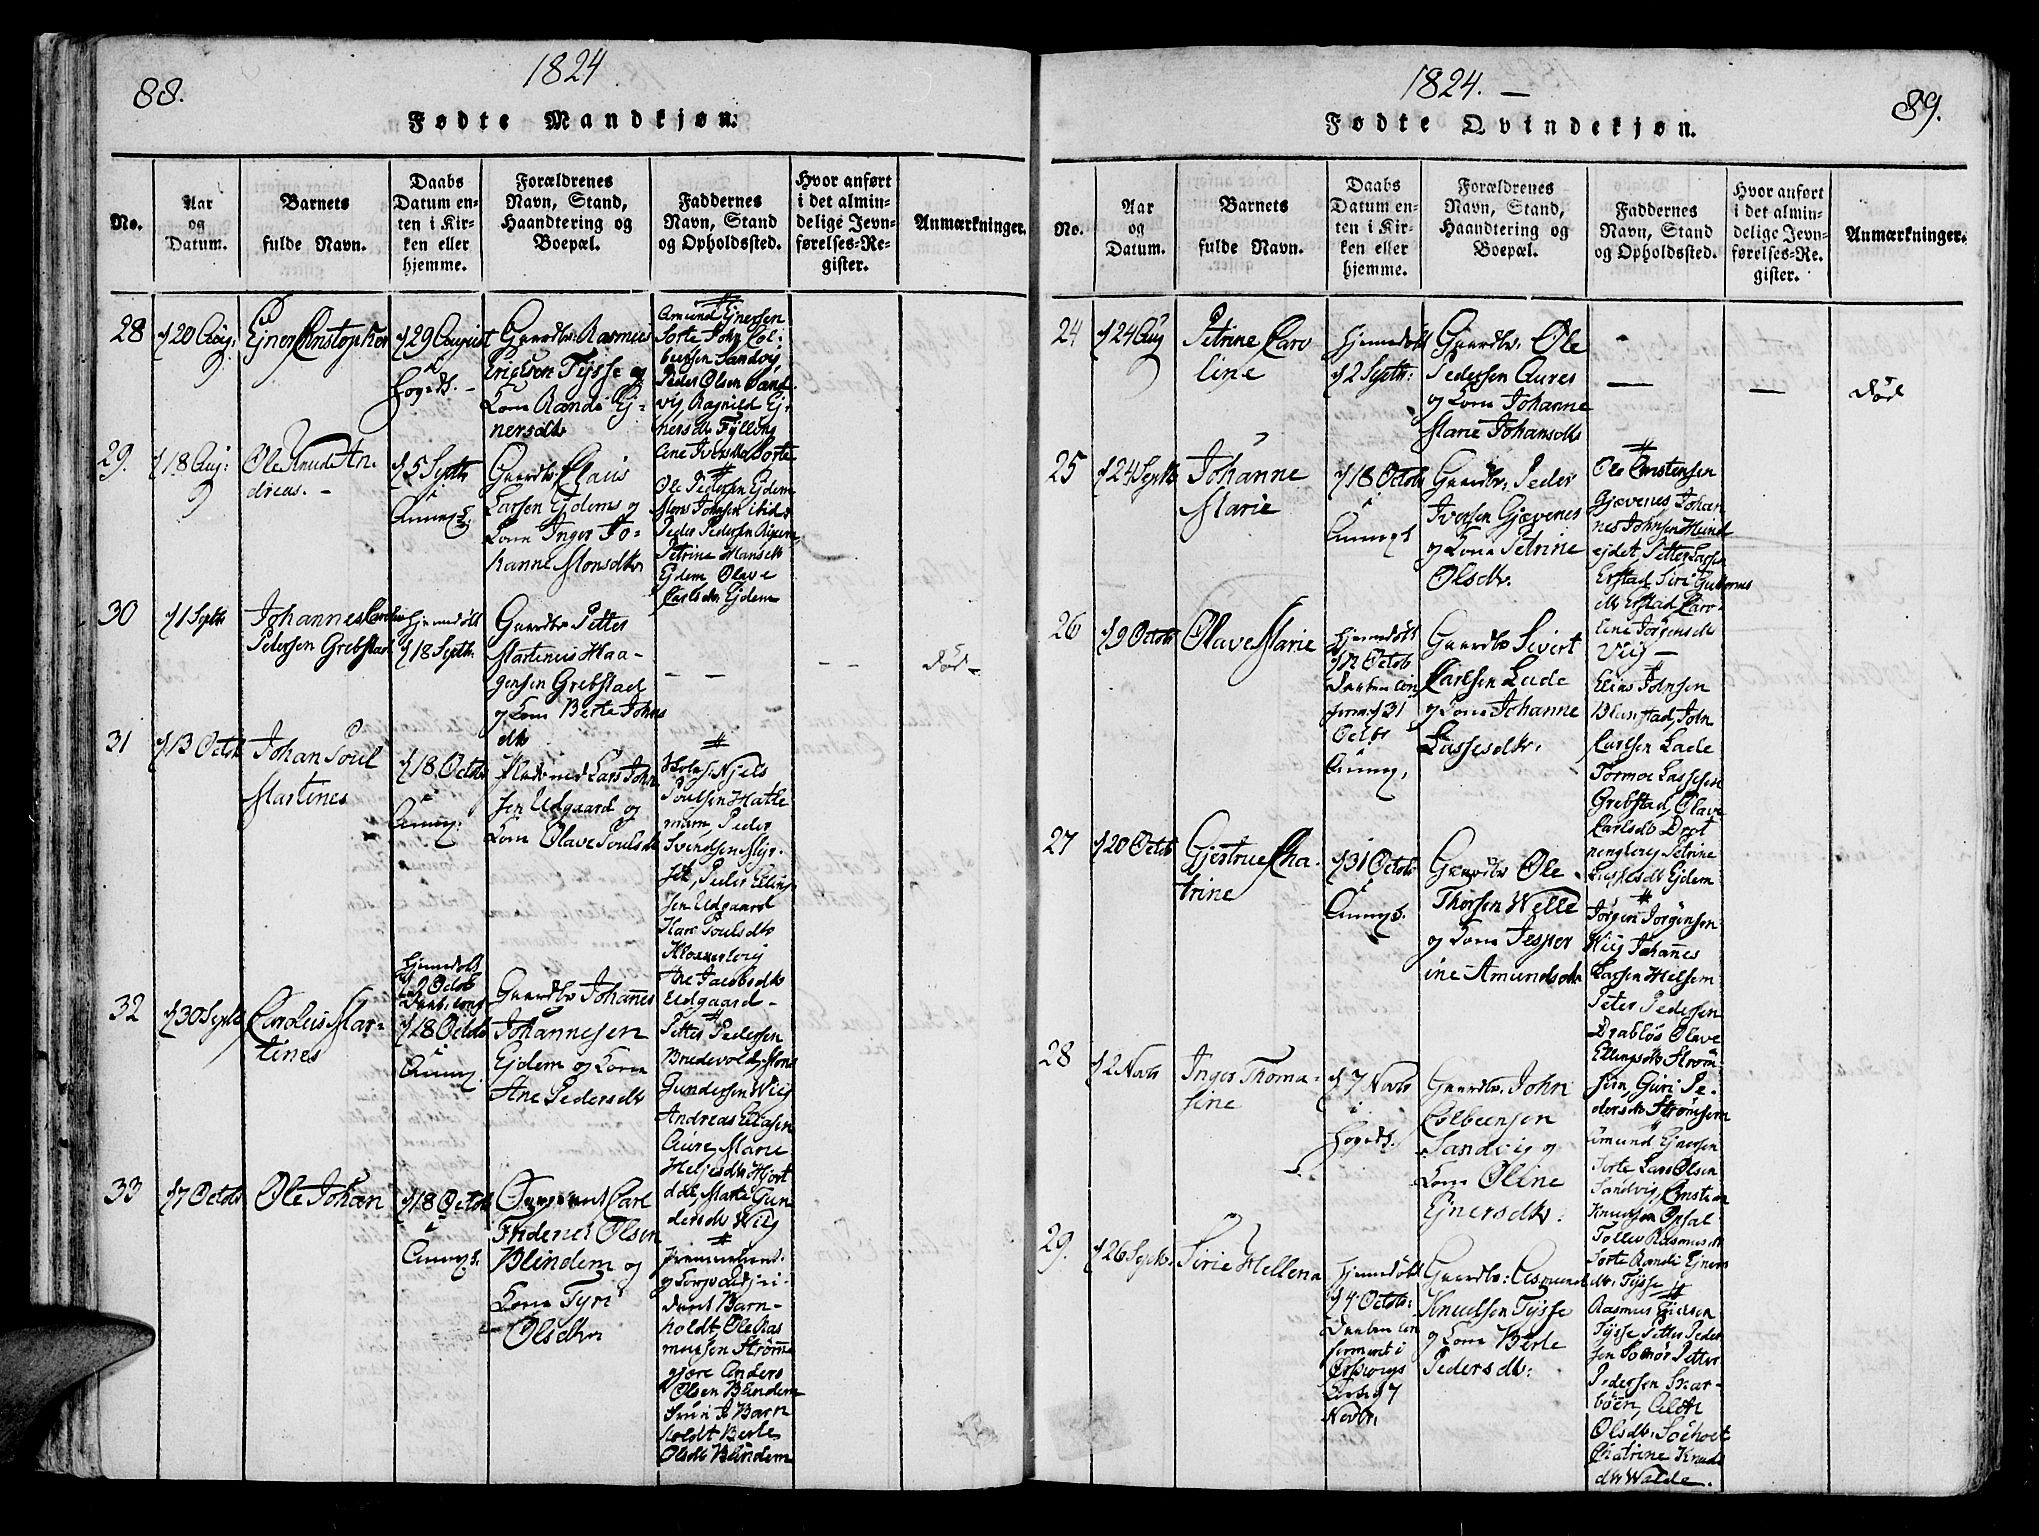 88.
1824
Fødte Mandkjøn.
No.
Aar
og
Datum.
Barnets
fulde Navn.
Daabs
Datum en-
ten i Kir-
ken eller
hjemme.
Forældrenes
Navn, Stand,
Haandtering og
Boepæl.
Faddernes
Navn, Stand
og Opholdssted.
Hvor anført
i det almin-
delige Jevn-
førelses-Re-
gister.
Anmærkninger.
28
20 Aug:
Ejner
29 August
i
Gaardbr. Rasmus
Tysse og
Kone Randi Ej-
nersdtr
Amund Ejnersen
Sorte John Col-
beensen Sandvig
Peder Olsen Sand-
vig Ragnild Ej-
nersdtr
Ane Iversdtr Sorte
29.
18 Aug:
Ole Knud An-
dreas. -
5 Septbr
i
Gaardbr. Claus
Larsen Ejdems og
Kone Inger Jo-
hanne Monsdtr
Ole Pedersen Ejdem
Mons Johnsen ibid:
Peder Pedersen
Petrine Hansdtr
Ejdem Olave
Carlsdtr Ejdem
30
1 Septbr
Johannes
Petersen Grebstad
Hjemmedøbt
18 Septbr.
Gaardbr Petter
Martinius Haa-
gensen Grebstad
og Kone Berte Johns
dtr
død -
31
13 Octobr
Johan Poul
Martines
18 Octobr
i
Lars John
sen Udgaard og
Kone Olave Poulsdtr
Njels
Poulsen Hatle
mann Peder
Svendsen Myr-
set, Peder Elling
sen Udgaard
Poulsdtr
Ane Jacobsdtr
Udgaard -
32
30 Septbr
Carolus Mar-
tines
Hjemmedøbt
2 Octob
18 Octobr
i
Gaardbr Johannes
Johannesen
Ejdem og Kone
Ane Pedersdtr
Petter Pedersen
Brudevold, Mons
Gundersen Wiig
Andreas Eliasen
Aure Marie
Heljesdtr Hjort
dal, Marte Gun
dersdtr Wiig
33
7 Octobr
Ole Johan
18 Octobr
i
Carl
Friderich Olsen
Blindem og
Kone Tyri
Olsdtr
dent Barn-
holdt Ole Ras
mussen Strømme
gjære Anders
Olsen Blindem
Barn
holdt Berte
Olsdtr Blindem
1824. -
89.
Fødte Qvindekjøn.
No.
Aar
og
Datum.
Barnets
fulde Navn.
Daabs
Datum en-
ten i Kir-
ken eller
hjemme.
Forældrenes
Navn, Stand,
Haandtering og
Boepæl.
Faddernes
Navn, Stand
og Opholdssted.
Hvor anført
i det almin-
delige Jevn-
førelses-Re-
gister.
Anmærkninger.
24
24 Aug
Petrine Caro
line
Hjemmedøbt
2 Septbr:
Gaardbr. Ole
Pedersen Aures
og Kone Johanne
Marie Johansdtr
død
25
24 Septbr
Johanne
Marie
18 Octobr
i
Gaardbr. Peder
Iversen Gjævenes
og Kone Petrine
Olsdtr.
Ole
Gjævenes Johan
nes Johnsen Hund
ejdet Petter Larsen
Erstad Siri Guttorms
dtr Erstad Caro-
line Jørgensdtr
Viig -
26
9 Octobr
Olave Marie
Hjemmedøbt
12 Octob
Daaben con
firm. 31
Octbr
Gaardbr Sivert
Carlsen Lade
og Kone Johanne
Lassesdtr.
Elias Johnsen
John
Carlsen Lade
Tormoe Lassesen
Grebstad, Olave
Carlsdtr Drot
ningberg Petrine
Ejdem
27
20 Octob
Gjertrue Cha-
trine
31 Octobr
i
Gaardbr Ole
Thorsen Welle
og Kone Jesper
ine Amundsdtr
Jørgen Jørgensen
Wiig Johannes
Larsen Helsem
Peter Pedersen
Drabløs Olave
Ellingsdtr Strøm-
sem, Guri Pe-
dersdtr Strømsem
28
2 Novbr
Inger Thoma-
sine
7 Novbr
i
Gaardbr. John
Colbeensen
Sandvig og
Kone Oline
Ejnersdtr.
Amund Ejnersen
Sorte Lars Olsen
Sandvig,
Knudsen Opsal
Rasmusdtr
Sorte Randi Ejners
dtr. Tysse
29.
26 Septbr.
Sirie Hellena
Hjemmedøbt
4 Octobr:
Daaben con
firmeret i
Kirke 7
Novbr.
Gaardbr: Asmund
Knudsen Tysse
og Kone Berte
Pedersdtr.
Rasmus
Tysse Petter Peder
sen Petter
Pedersen Skar-
bøen,
Olsdtr. Søeholt
Chatrine Knuds
dtr Walde.